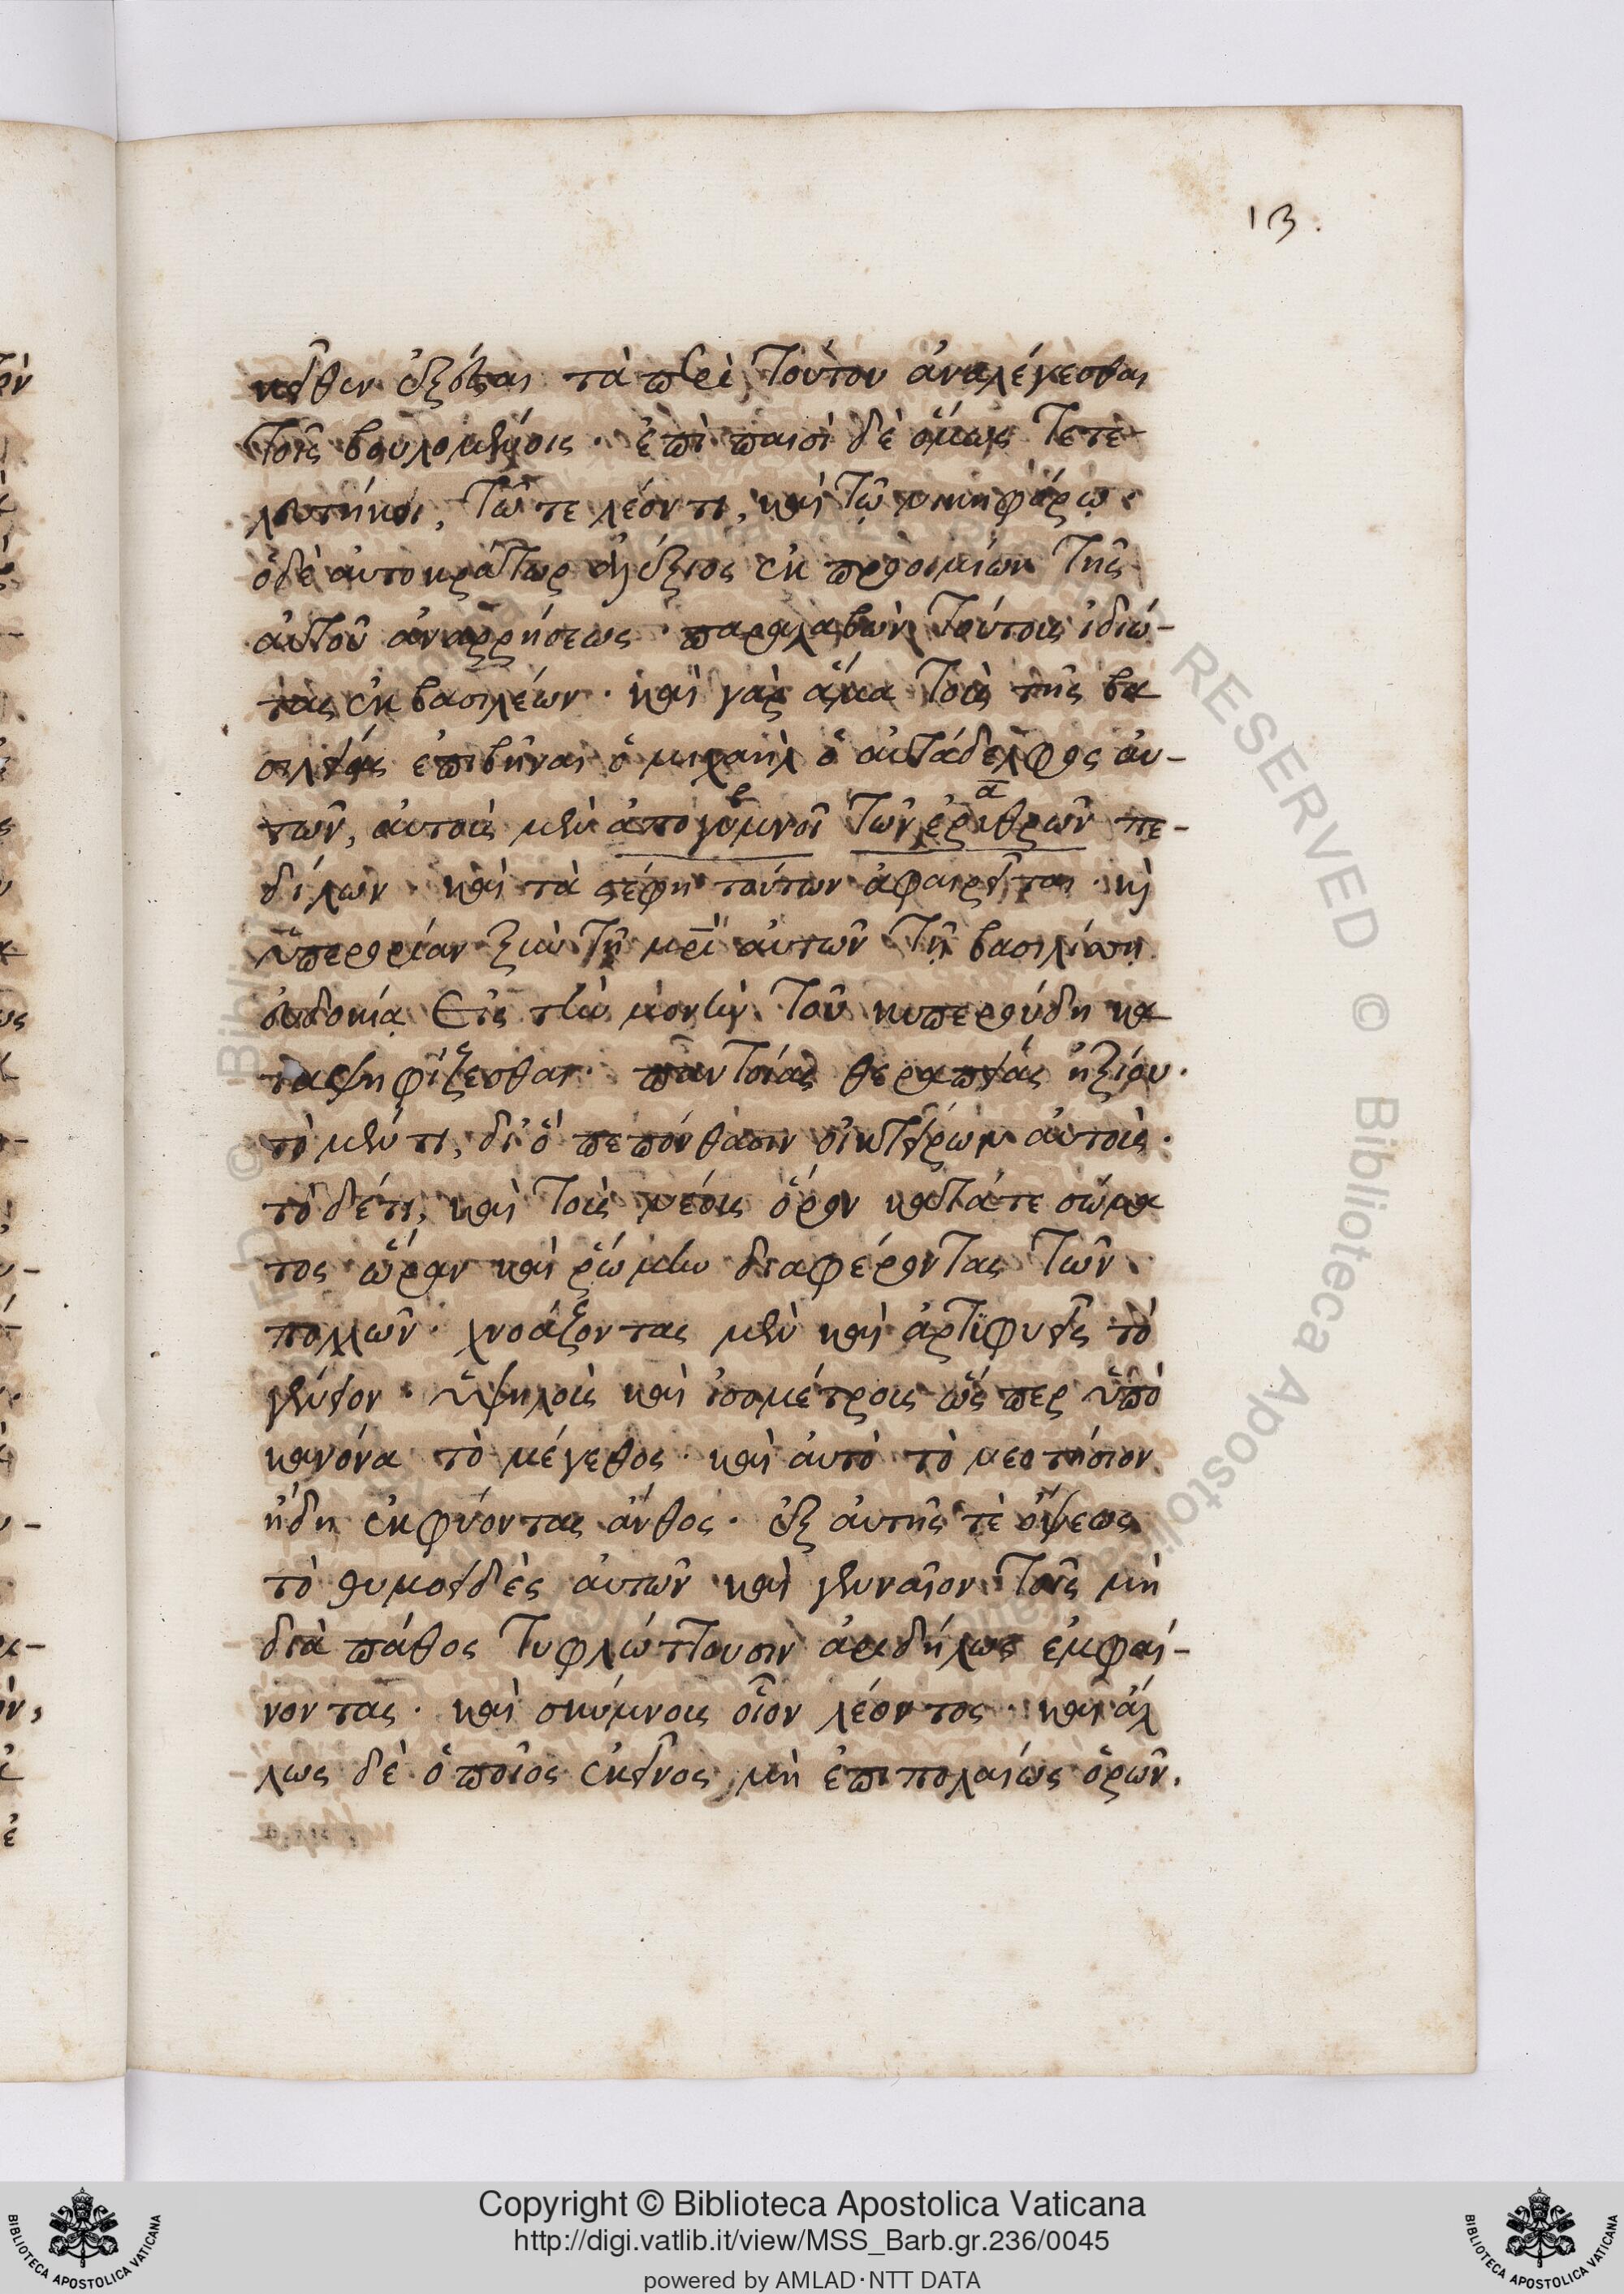 13.
κεῖθεν ἐξέσται τὰ περὶ τούτου ἀναλέγεσθαι
τοῖς βουλομένοις · ἐπὶ παισὶ δὲ ὅμως τετε
λευτήκει, τῶ τε λέοντι, καὶ τῷ νικηφόρῳ ·
ὁδὲ αὐτοκράτωρ ἀλέξιος ἐκ προοιμίων τῆς
αὐτοῦ ἀναρρήσεως · παραλαβὼν τούτους ἰδιώ-
τας ἐκ βασιλέων · καὶ γὰρ ἅμα τοῖς τῆς βα
σιλείας ἐπιβῆναι ὁ μιχαὴλ ὁ αὐτάδελφος αὐ-
β α
τῶν, αὐτοὺς μὲν ἀπογυμνοῖ τῶν ἐριθρῶν πε-
δίλων · καὶ τὰ στέφη τούτων ἀφαιρεῖται · κὶ
ὑπερορίαν ξὺν τῇ μρὶ αὐτῶν τῇ βασιλίσσῃ
εὐδοκίᾳ εἰς τὴν μονὴν τοῦ κυπερούδη κα
ταψηφίζεσθαι · παντοίας θεραπείας ἠξίου ·
τὸ μέν τι, δι' ὃ πεπόνθασιν οἰκτείρων αὐτοὺς ·
τὸ δέ τι, καὶ τοὺς νέους ὁρῶν κατά τε σώμα
τος ὥραν καὶ ῥώμην διαφέροντας τῶν
πολλῶν · χνοάζοντας μὲν καὶ ἀρτιφυεῖς τὸ
γένειον · ὑψηλοὺς καὶ ἰσομέτρους ὥς περ ὑπὸ
κανόνα τὸ μέγεθος · καὶ αὐτὸ τὸ νεοτήσιον
ἤδη ἐκφύοντας ἄνθος · ἐξ αὐτῆς τὲ ὄψεως
τὸ θυμοειδὲς αὐτῶν καὶ γενναῖον τοῖς μὴ
διὰ πάθος τυφλώττουσιν ἀριδήλως ἐμφαί-
νοντας · καὶ σκύμνους οἷον λέοντος · καὶ ἄλ
λως δὲ ὁποῖος ἐκεῖνος μὴ ἐπιπολαίως ὁρῶν,
Copyright © Biblioteca Apostolica Vaticana
http://digi.vatlib.it/view/MSS_Barb.gr.236/0045
powered by AMLAD·NTT DATA